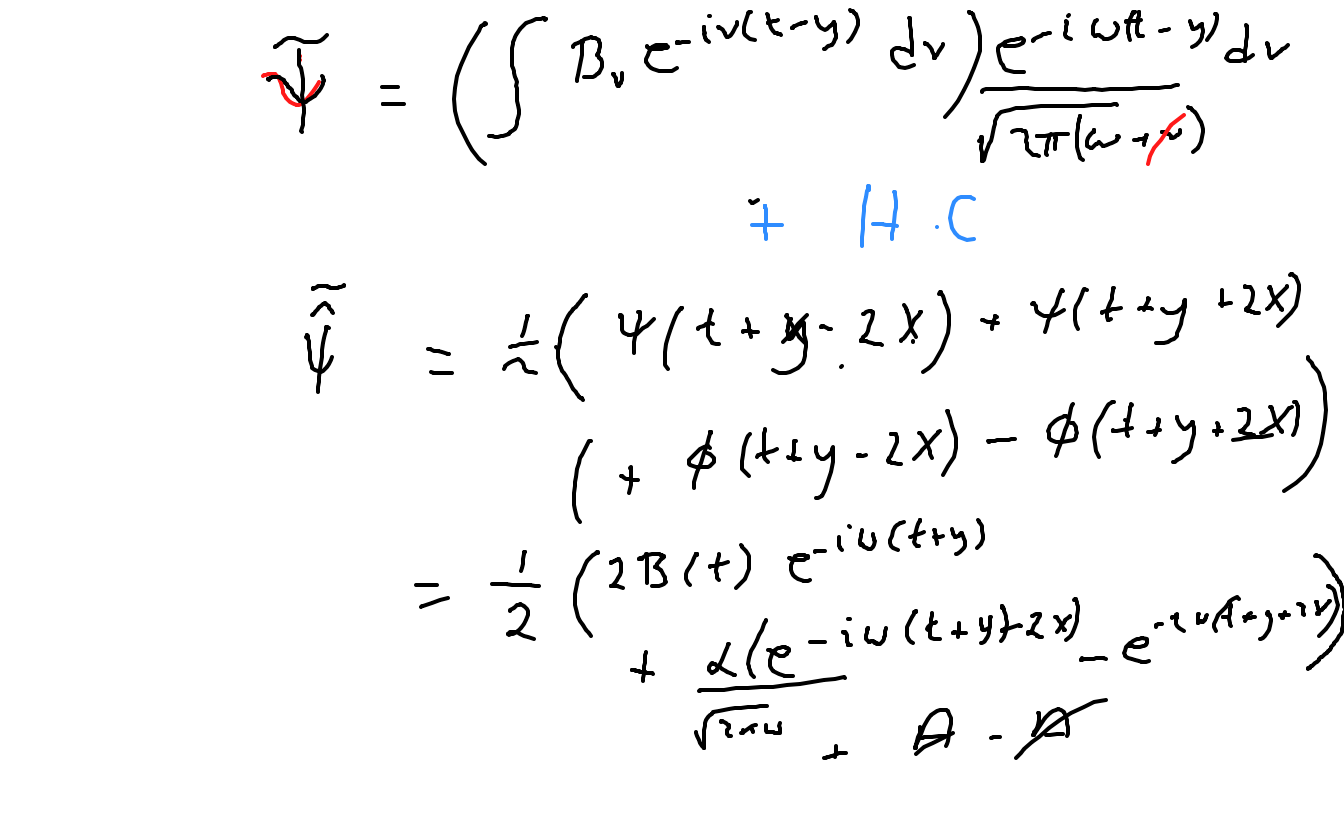 Ψ̃ = (∫ B_ν e^{-iν(t-y)} dν) e^{-iω(t-y)} dν / √(2π(ω+ν))
+ H.C
ψ̃̂ = 1/2 ( ψ(t+y-2X) + ψ(t+y+2X)
( + φ(t+y-2X) - φ(t+y+2X) )
= 1/2 ( 2B(t) e^{-iω(t+y)}
+ α(e^{-iω(t+y)-2X)} - e^{-iω(t+y+2X)} )
√2πω + A - A